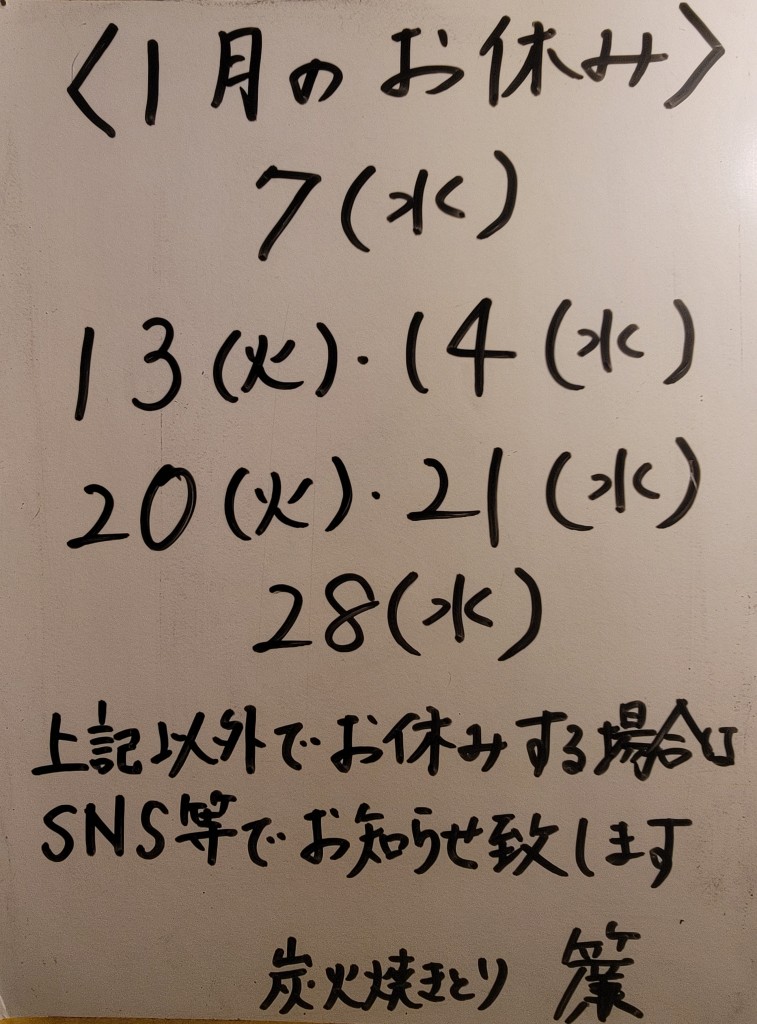 〈1月のお休み〉
7(水)
13(火)・14(水)
20(火)・21(水)
28(水)
上記以外でお休みする場合は
SNS等でお知らせ致します
炭火焼きとり 簾